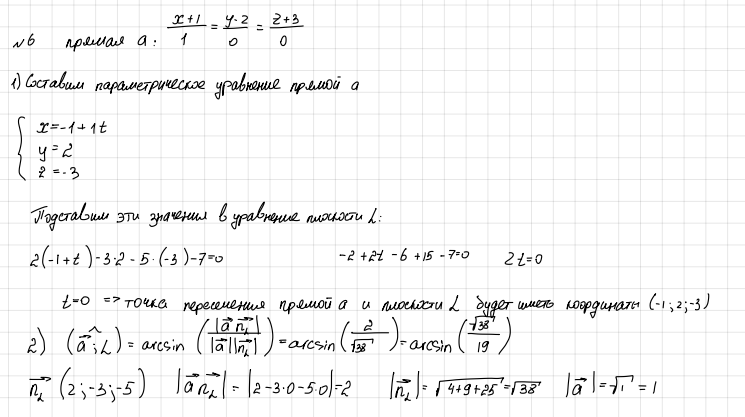 №6 прямая a: (x+1)/1 = (y-2)/0 = (z+3)/0
1) Составим параметрическое уравнение прямой a
{ x=-1+1t
y=2
z=-3
Подставим эти значения в уравнение плоскости L:
2(-1+t)-3·2-5·(-3)-7=0 -2+2t-6+15-7=0 2t=0
t=0 => точка пересечения прямой a и плоскости L будет иметь координаты (-1;2;-3)
2) (a⃗^;L) = arcsin(|a⃗ n⃗_L|/(|a⃗||n⃗_L|)) = arcsin(2/√38) = arcsin(√38/19)
n⃗_L (2;-3;-5) |a⃗ n⃗_L| = |2-3·0-5·0|=2 |n⃗_L|=√(4+9+25)=√38 |a⃗|=√1=1